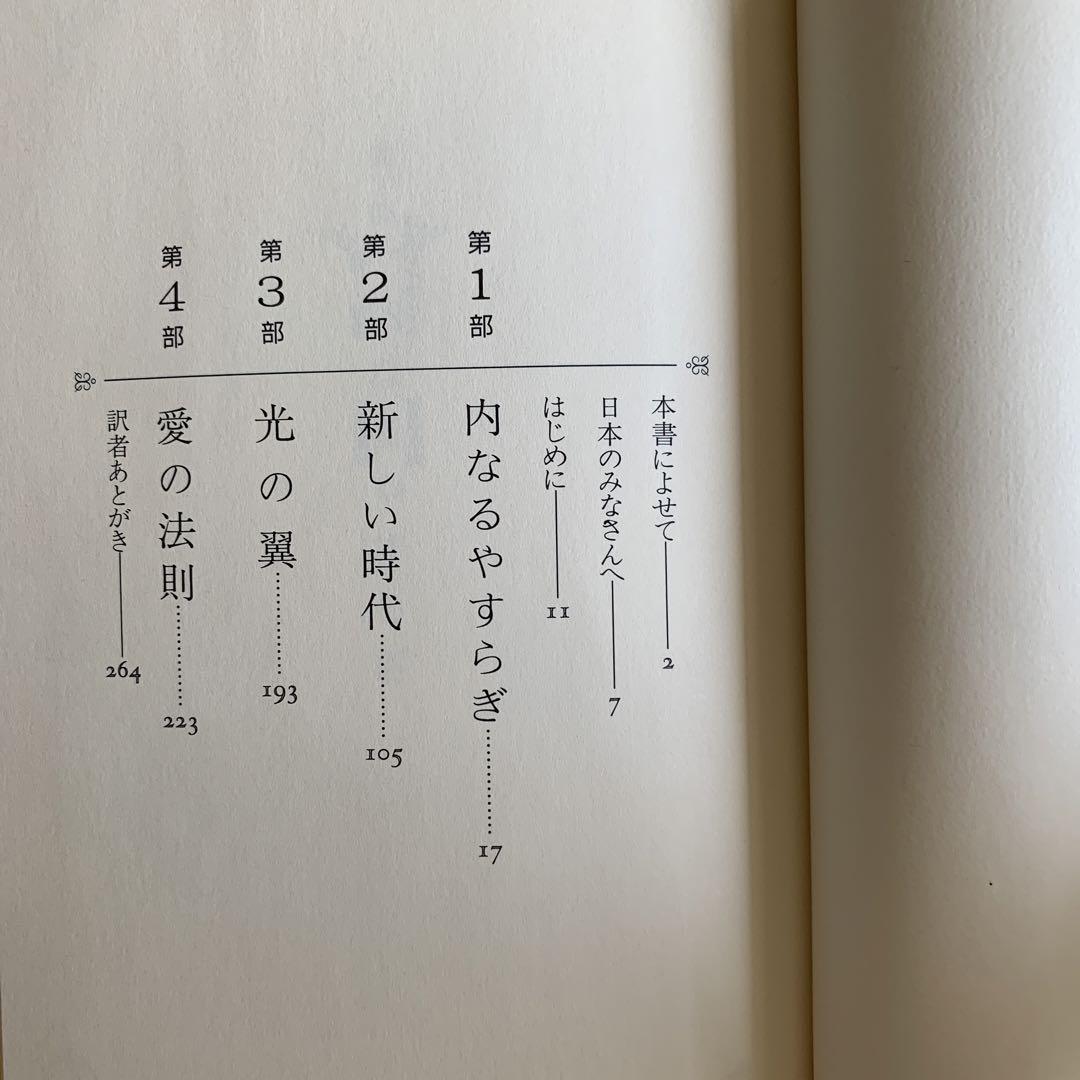 本書によせて 2
日本のみなさんへ 7
はじめに 11
第1部 内なるやすらぎ 17
第2部 新しい時代 105
第3部 光の翼 193
第4部 愛の法則 223
訳者あとがき 264